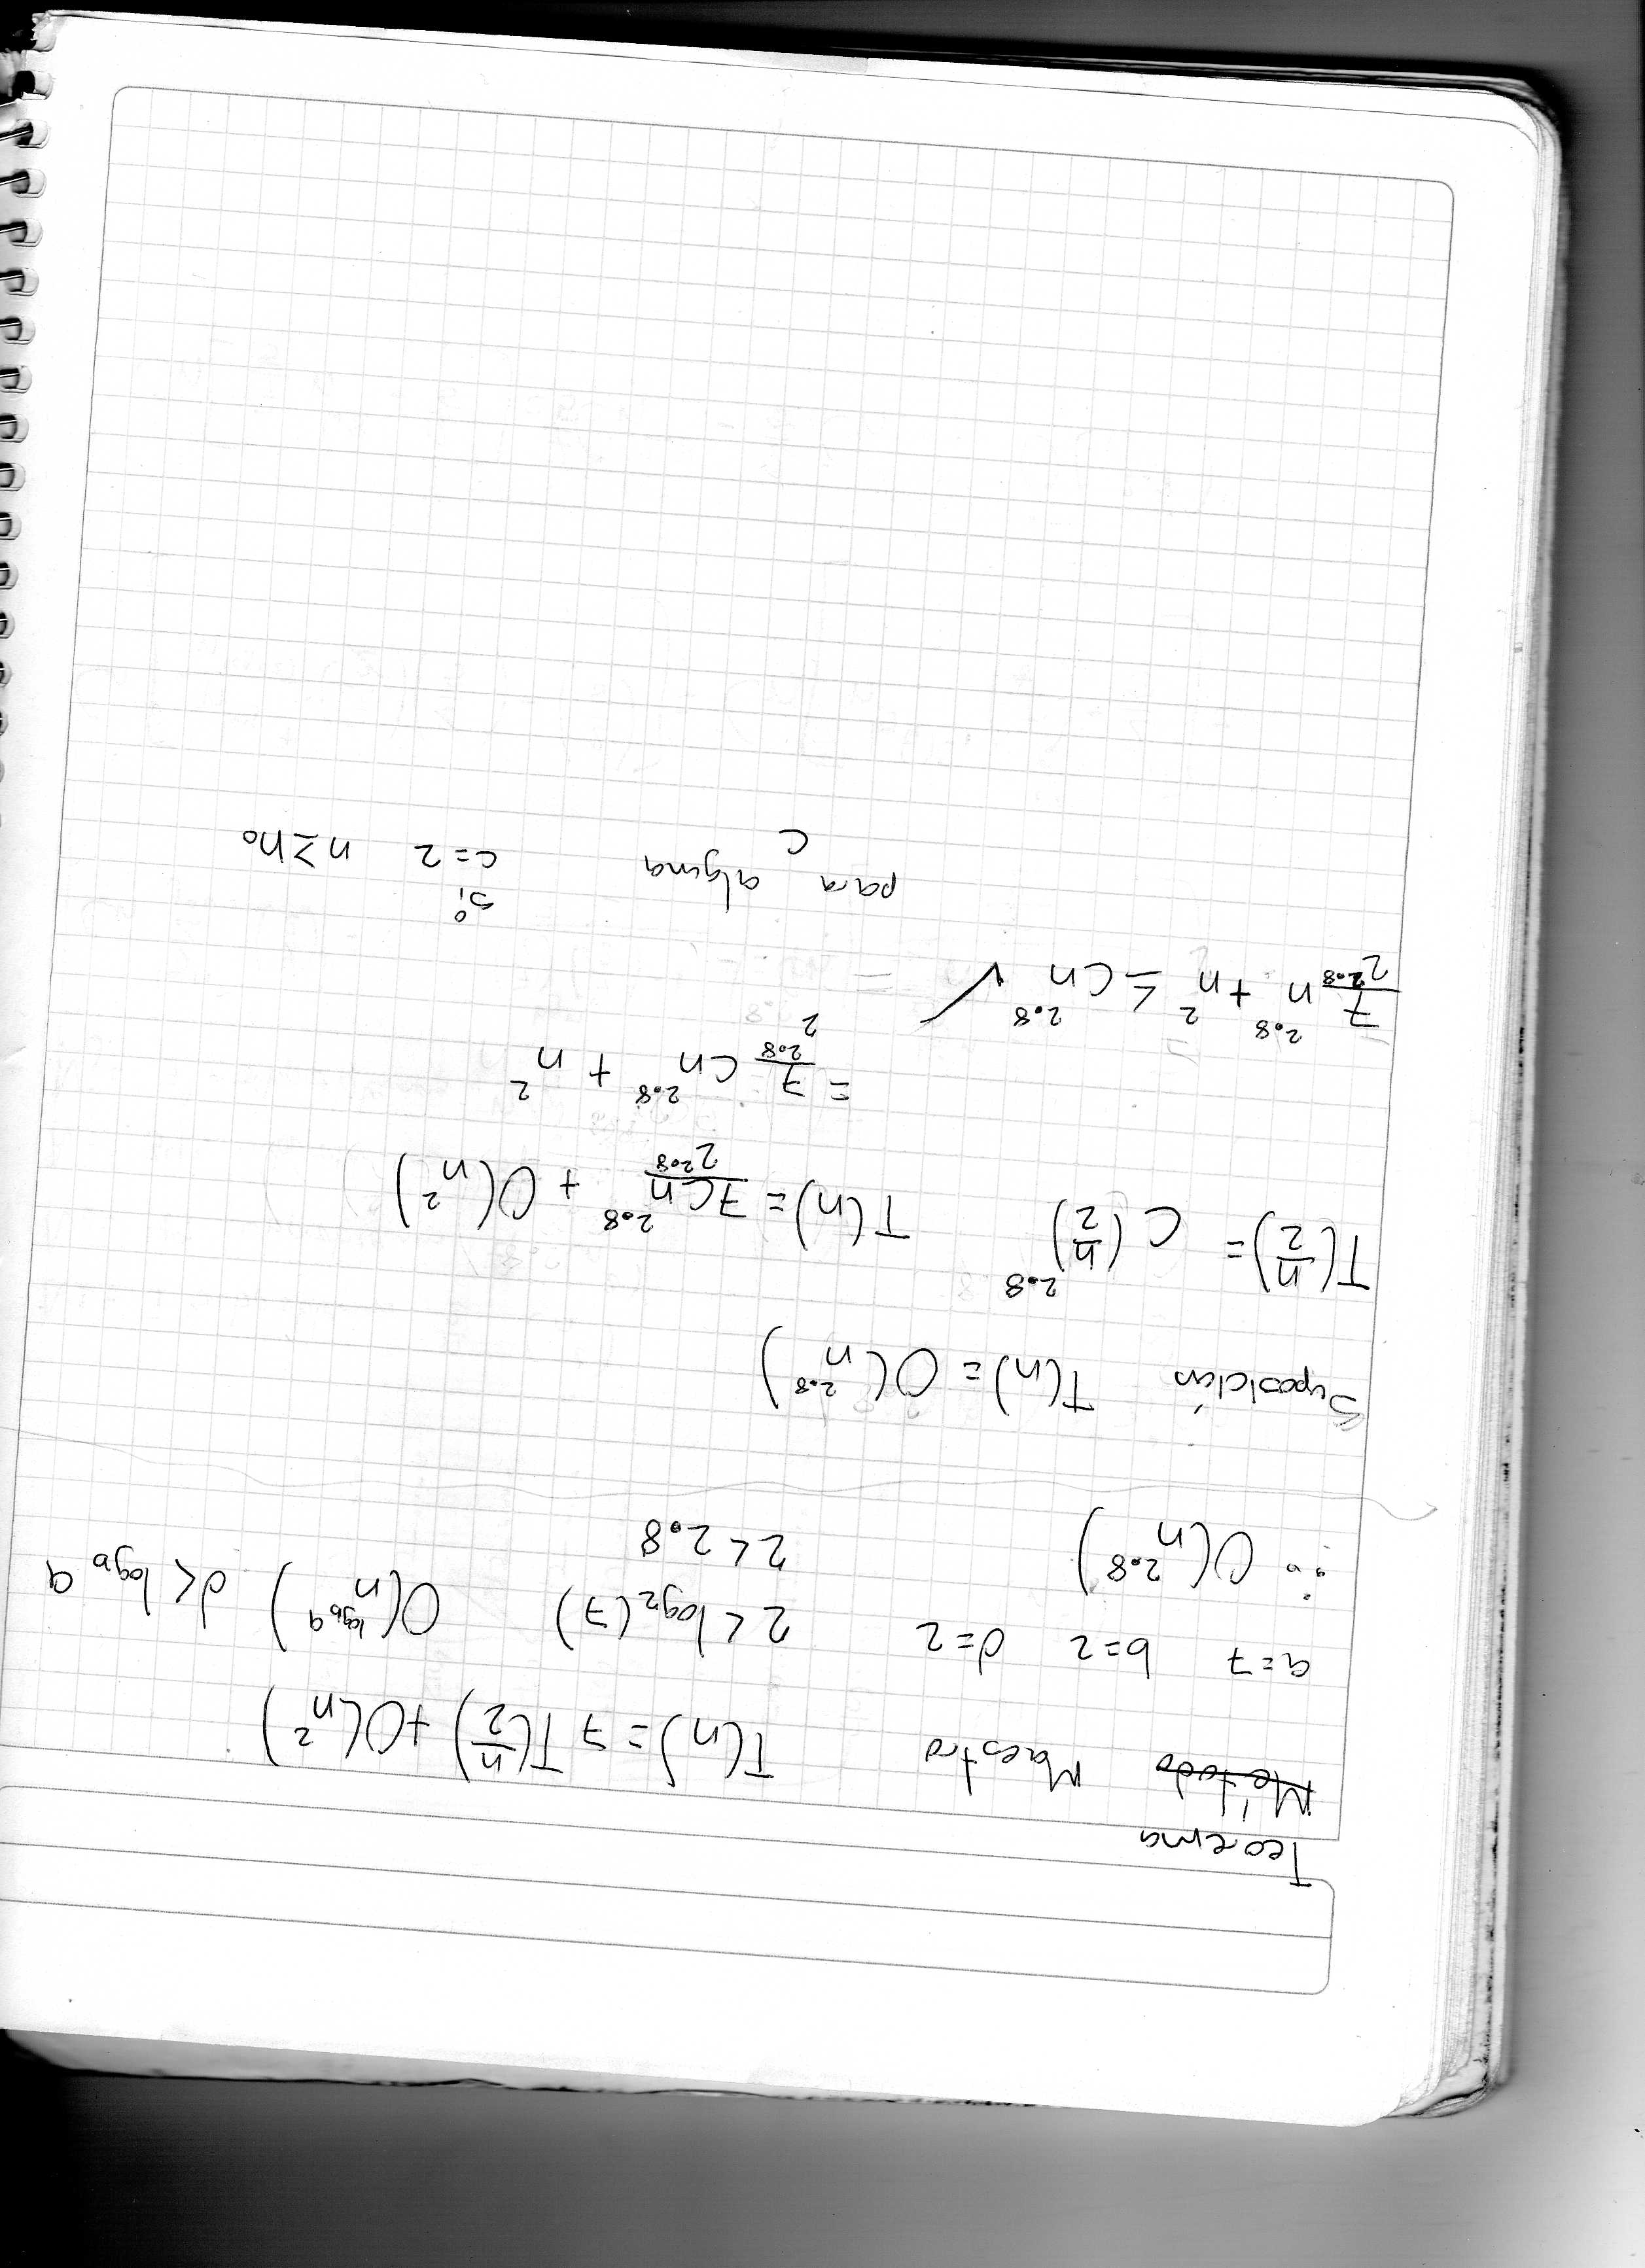 Teorema
Método Maestro T(n) = 7T(n/2) + O(n^2)
a=7 b=2 d=2 2 < log_2(7) O(n^{log_b a}) d < log_b a
∴ O(n^{2.8}) 2 < 2.8
Suposición T(n) = O(n^{2.8})
T(n/2) = C(n/2)^{2.8} T(n) = 7Cn^{2.8}/2^{2.8} + O(n^2)
= 7/2^{2.8} Cn^{2.8} + n^2
7/2^{2.8} n^{2.8} + n^2 ≤ Cn^{2.8} ✓
para alguna C si c=2 n≥n_0